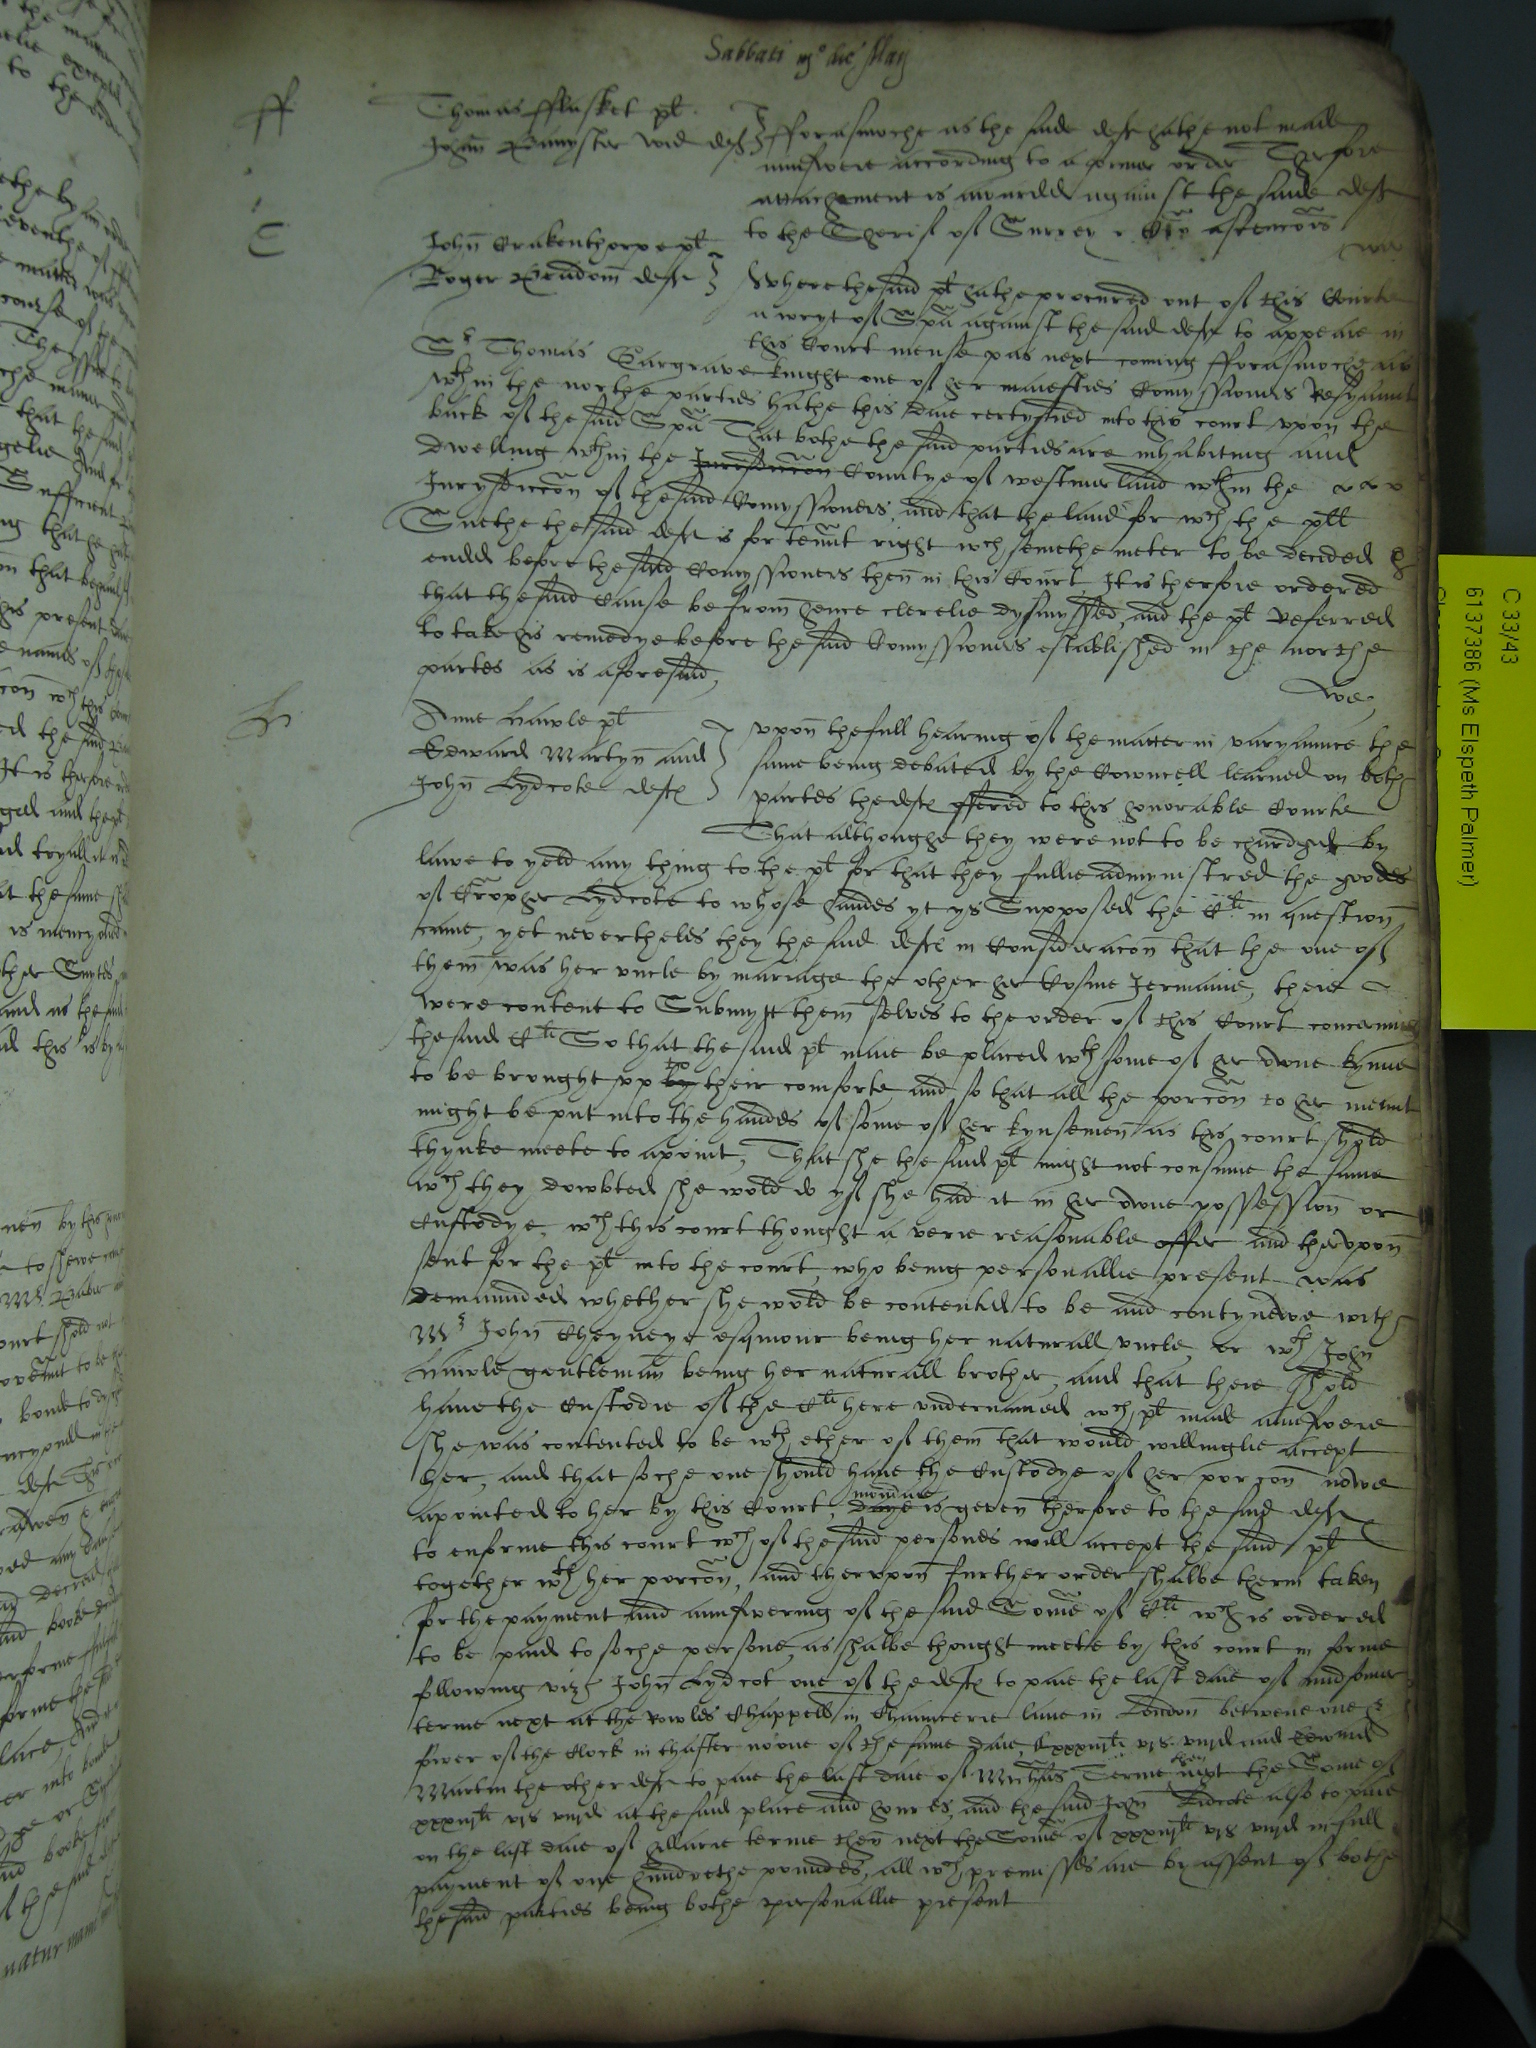 Sabbati iijo die Maij
ff
Thomas fflusket pt
Johan Banyster wid deft
fforasmoche as the saide deft hathe not made
aunswere according to a former order Therfore
attachement is awarded against the saide deft
to the Sherif of Surrey r
C
John Crakenthorpe pt
Roger deft
Where the said pt hathe procured out of this Courte
a wryt of Spa against the said deft to appeare in
this Court mense pas next coming fforasmoche as
Sr Thomas Gargrave knight one of her maiesties Comyssioners Resyaunt
wthin the northe parties hathe this daie certyfied into this court vpon the
back of the said Spa That bothe the said parties are inhabiting and
dwelling wthin the Jurisdiccon Countye of westmerland wthin the
Jurysdiccon of the said Comyssioners, and that the land for wch the ptt
Suethe the said deft is for tennt right wch semethe meter to be decided &
ended before the said Comyssioners then in this Court It is therfore ordered
that the said Cause be from hence clerelie dysmyssed, and the pt Referred
to take his remedye before the said Comyssioners established in the northe
partes as is aforesaid,
h
Anne hawle pt
Edward Martyn and
John Lydcote deftes
vpon the full hearing of the matter in varyaunce the
same being debated by the Cowncell learned on both
partes the deftes offered to this honorable Courte
That althoughe they were not to be chardged by
lawe to yeld any thing to the pt for that they fullie admynistred the goodes
of Lydcote to whose handes yt ys Supposed the Cli in question
came, yet nevertheles they the said deftes in Consideracon that the one of
them was her vncle by mariage the other her Cosine Jermaine, theie
were content to Submytt them selves to the order of this Court concerning
the said Cli So that the said pt maie be placed wth some of her owne kynne
to be brought vp by to their comforte, and so that all the porcon to her meant
might be put into the handes of some of her kynsemen as this court shold
thynke meete to apoint, That she the said pt might not consume the same
wch they dowbted she wold do yf she had it in her owne possession or
Custodye, wch this court thought a verie reasonable offer and thervpon
sent for the pt into the court, who being personallie present was
demaunded whether she wold be contented to be and contynewe with
Mr John Cheyneye esquiour being her naturall vncle, or wth John
hawle gentleman being her naturall brother, and that theie shold
haue the Custodie of the Cli here vndernamed wch pt made aunswere
she was contented to be wth ether of them that would willinglie accept
her, and that soche one should haue the Custodye of her porcon nowe
apointed to her by this Court, daye is geven therfore to the said deftes
to enforme this court wch of the said persones will accept the said pt
together wth her porcon, and thervpon further order shalbe therin taken
for the payment and aunswering of the said Some of Cli wch is ordered
to be paid to soche persone, as shalbe thought meete by this court in forme
following vizt John Lydcot one of the deftes to paie the last daie of midsomer
terme next at the Rowles Chappell in Chauncerie lane in London betwene one &
fower of the Clock in thafter none of the same daie, xxxiijli vjs viijd and Edward
Martin the other deft to paie the last daie of Michas Terme then next the Some of
xxxiijli vjs viijd at the said place and houres, and the said John Lidcote also to paie
on the last daie of hillarie terme then next the Some of xxxiijli vjs viijd in full
payment of one hundrethe poundes, all wch premisses are by assent of bothe
the said parties being bothe personallie present
C 33/43
6137386 (Ms Elspeth Palmer)